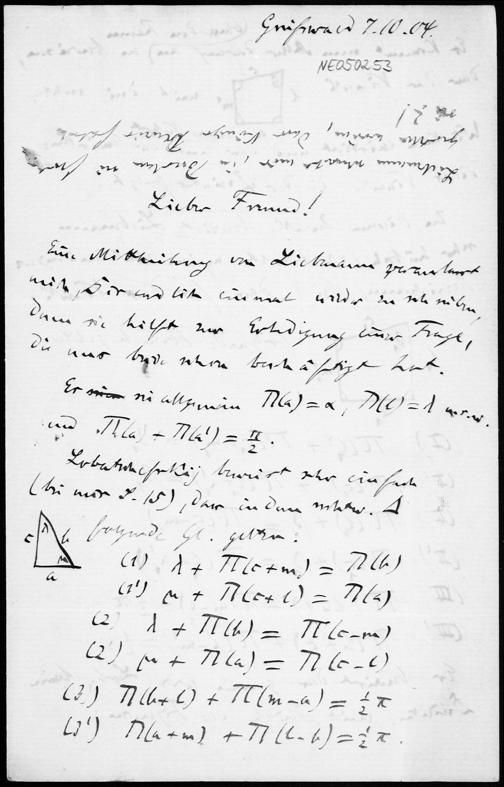 Greifswald 7.10.04.
NE050253
Lieber Freund!
Eine Mittheilung von Liebmann veranlasst
mich, Dir endlich einmal wieder zu schreiben,
denn sie hilft zur Erledigung einer Frage,
die uns beide schon beschäftigt hat.
Es sei allgemein Π(a) = α, Π(l) = λ u.s.w.
und Π(a) + Π(a') = π/2.
Lobatschefskij beweist sehr einfach
(bei mir S. 15), dass in dem rechtw. Δ
folgende Gl. gelten:
c λ b μ a
(1) λ + Π(c+m) = Π(b)
(1') μ + Π(c+l) = Π(a)
(2) λ + Π(b) = Π(c-m)
(2') μ + Π(a) = Π(c-l)
(3) Π(b+l) + Π(m-a) = ½π
(3') Π(a+m) + Π(l-b) = ½π.